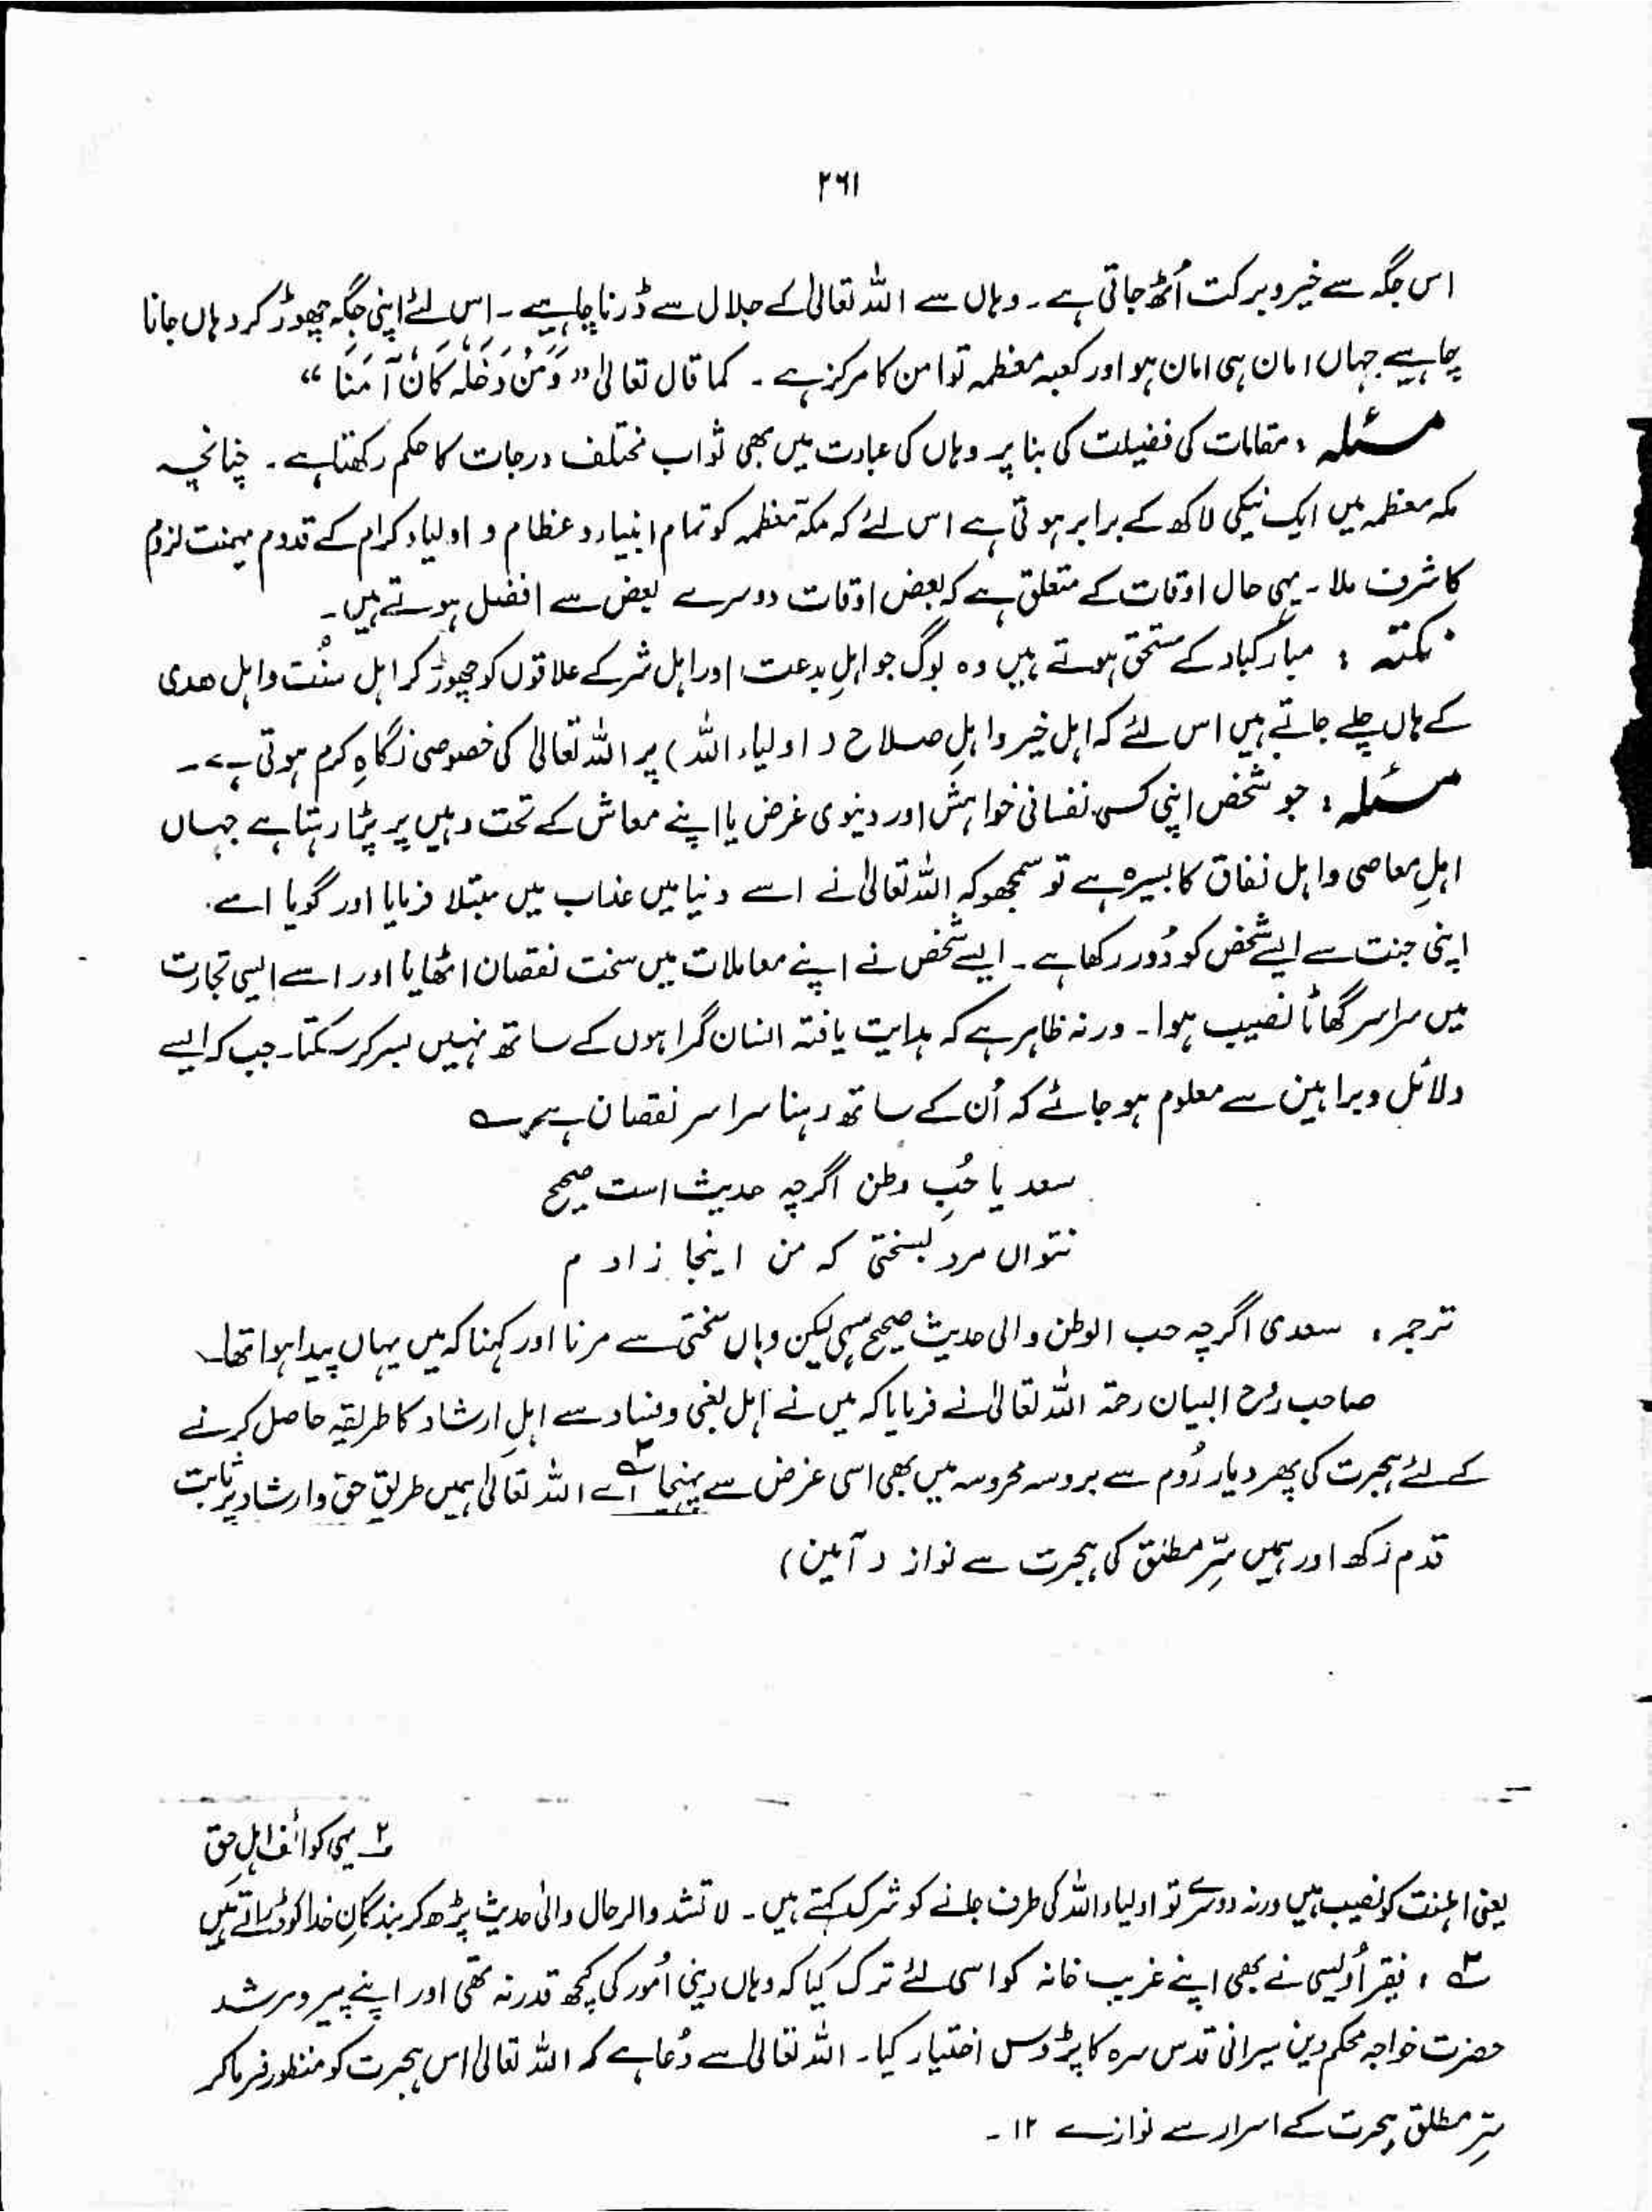 ۲۶۱
اس جگہ سے خیر و برکت اُٹھ جاتی ہے ۔ وہاں سے اللہ تعالیٰ کے جلال سے ڈرنا چاہیے ۔ اس لئے اپنی جگہ چھوڑ کر وہاں جانا
چاہیے جہاں امان ہی امان ہو اور کعبہ معظمہ تو امن کا مرکز ہے ۔ کما قال تعالیٰ " وَمَنْ دَخَلَہٗ کَانَ آمَنَا "
مسئلہ : مقامات کی فضیلت کی بنا پر وہاں کی عبادت میں بھی ثواب مختلف درجات کا حکم رکھتا ہے ۔ چنانچہ
مکہ معظمہ میں ایک نیکی لاکھ کے برابر ہوتی ہے اس لئے کہ مکہ معظمہ کو تمام انبیاء و عظام و اولیاء کرام کے قدوم میمنت لزوم
کا شرف ملا ۔ یہی حال اوقات کے متعلق ہے کہ بعض اوقات دوسرے بعض سے افضل ہوتے ہیں ۔
نکتہ : مبارکباد کے مستحق ہوتے ہیں وہ لوگ جو اہلِ بدعت اور اہل شر کے علاقوں کو چھوڑ کر اہل سنّت و اہل ھدی
کے ہاں چلے جاتے ہیں اس لئے کہ اہل خیر و اہلِ صلاح ( اولیاء اللہ ) پر اللہ تعالیٰ کی خصوصی نگاہِ کرم ہوتی ہے ۔
مسئلہ : جو شخص اپنی کسی نفسانی خواہش اور دنیوی غرض یا اپنے معاش کے تحت وہیں پر پڑا رہتا ہے جہاں
اہلِ معاصی و اہل نفاق کا بسیرہ ہے تو سمجھو کہ اللہ تعالیٰ نے اسے دنیا میں عذاب میں مبتلا فرمایا اور گویا اسے
اپنی جنت سے ایسے شخص کو دُور رکھا ہے ۔ ایسے شخص نے اپنے معاملات میں سخت نقصان اٹھایا اور اسے ایسی تجارت
میں سراسر گھاٹا نصیب ہوا ۔ ورنہ ظاہر ہے کہ ہدایت یافتہ انسان گمراہوں کے ساتھ نہیں بسر کر سکتا ۔ جب کہ ایسے
دلائل و براہین سے معلوم ہو جائے کہ اُن کے ساتھ رہنا سراسر نقصان ہے ؎
سعدیا حُبِ وطن اگرچہ حدیث است صحیح
نتواں مرد بسختی کہ من اینجا زادم
ترجمہ : سعدی اگرچہ حب الوطن والی حدیث صحیح سہی لیکن وہاں سختی سے مرنا اور کہنا کہ میں یہاں پیدا ہوا تھا ۔
صاحب روح البیان رحمۃ اللہ تعالیٰ نے فرمایا کہ میں نے اہل بغی و فساد سے اہلِ ارشاد کا طریقہ حاصل کرنے
کے لئے ہجرت کی پھر دیار رُوم سے بروسہ محروسہ میں بھی اسی غرض سے پہنچا ؎۳ اے اللہ تعالیٰ ہمیں طریق حق و ارشاد پر ثابت
قدم رکھ اور ہمیں سِرِّ مطلق کی ہجرت سے نواز ( آمین )
؎۲ یہی کوائف اہلِ حق
یعنی اہلسنت کو نصیب ہیں ورنہ دوسرے تو اولیاء اللہ کی طرف جانے کو شرک کہتے ہیں ۔ لا تشد والرحال والی حدیث پڑھ کر بندگانِ خدا کو ڈراتے ہیں
؎۳ : فقیر اُویسی نے بھی اپنے غریب خانہ کو اسی لئے ترک کیا کہ وہاں دینی اُمور کی کچھ قدر نہ تھی اور اپنے پیر و مرشد
حضرت خواجہ محکم دین سیرانی قدس سرہ کا پڑوس اختیار کیا ۔ اللہ تعالیٰ سے دُعا ہے کہ اللہ تعالیٰ اس ہجرت کو منظور فرما کر
سِرِّ مطلق ہجرت کے اسرار سے نوازے ۱۲ ۔